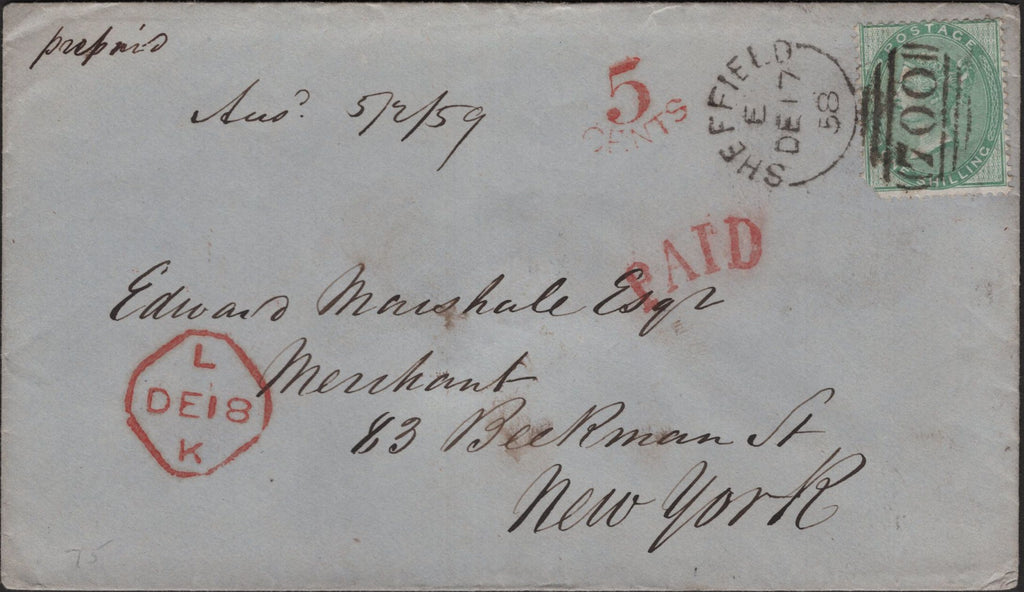 prepaid
Ansd. 5/2/59
5
CENTS
SHEFFIELD
E
DE 17
58
POSTAGE
700
SHILLING
PAID
Edward Marshall Esqr
Merchant
83 Beekman St
New York
L
DE 18
K
75